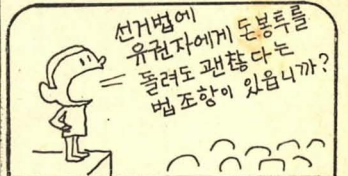 선거법에
유권자에게 돈봉투를
돌려도 괜찮다는
법조항이 있읍니까?